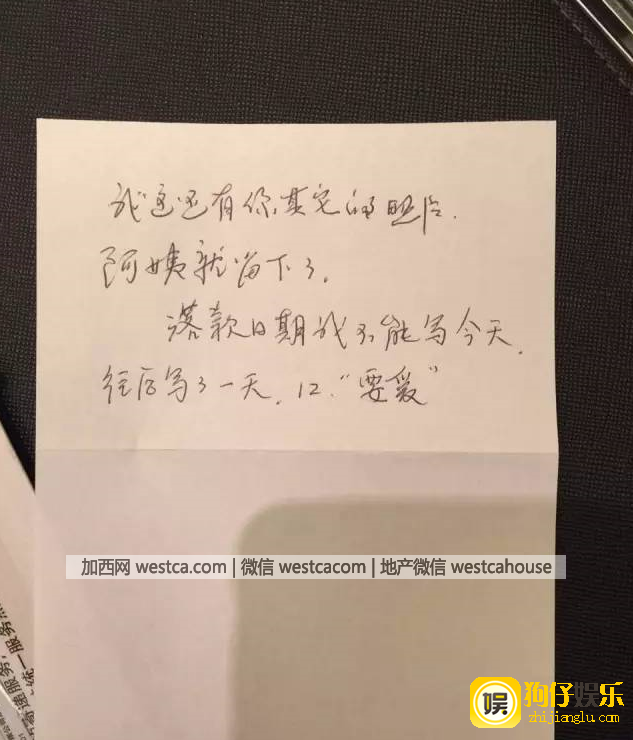 我这还有你其它的照片.
阿姨就留下了.
落款日期我不能写今天.
往后写了一天. 12. "要爱"
加西网 westca.com | 微信 westcacom | 地产微信 westcahouse
娱 狗仔娱乐
zhijianglu.com